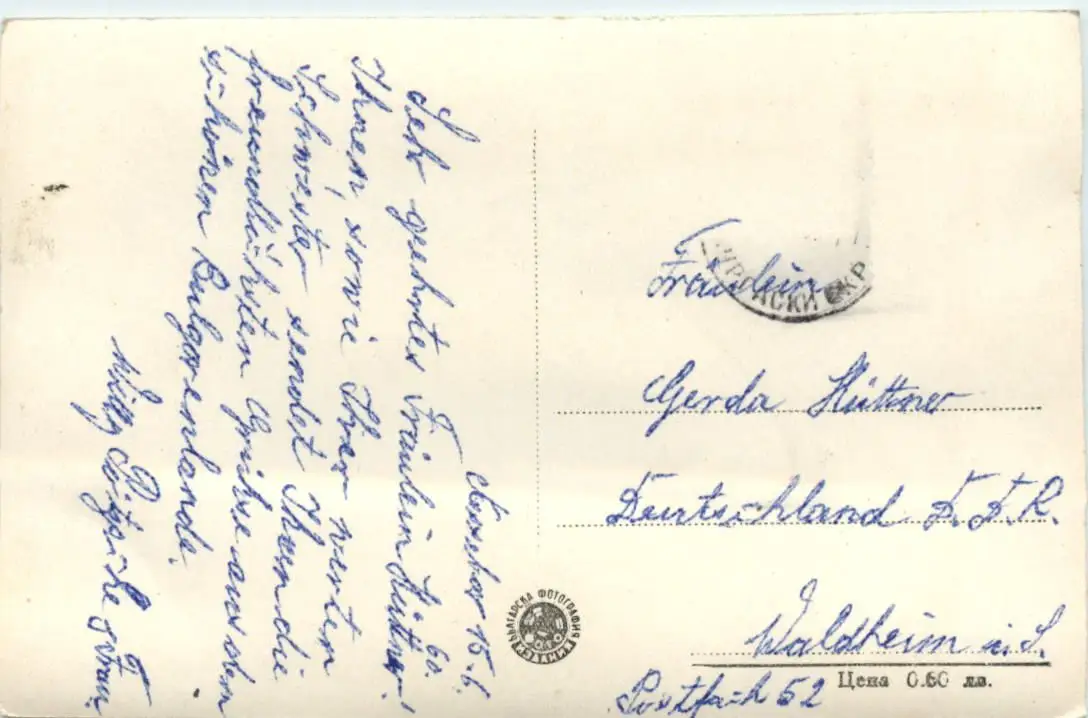 Nessebar 15.6.
60.
Sehr geehrtes Fräulein Hüttner!
Ihnen, sowie Ihrer werten
Schwester sendet Ihnen die
freundlichsten Grühse aus dem
schönen Bulgarenlande.
Willy
u. Frau.
Fräulein
Gerda Hüttner
Deutschland D.D.R.
Waldheim i. S.
Postfach 52
БЪЛГАРСКА ФОТОГРАФИЯ
Цена 0.60 лв.